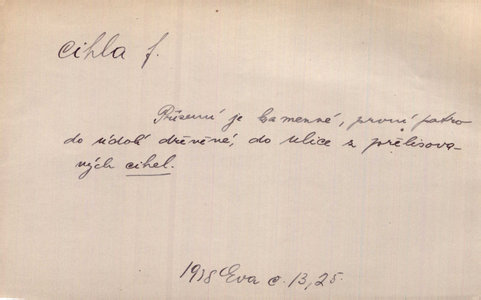 cihla f.
Přízemí je kamenné, první patro
do údolí dřevěné, do ulice z přelisova-
ných cihel.
1918 Eva c. 13, 25.